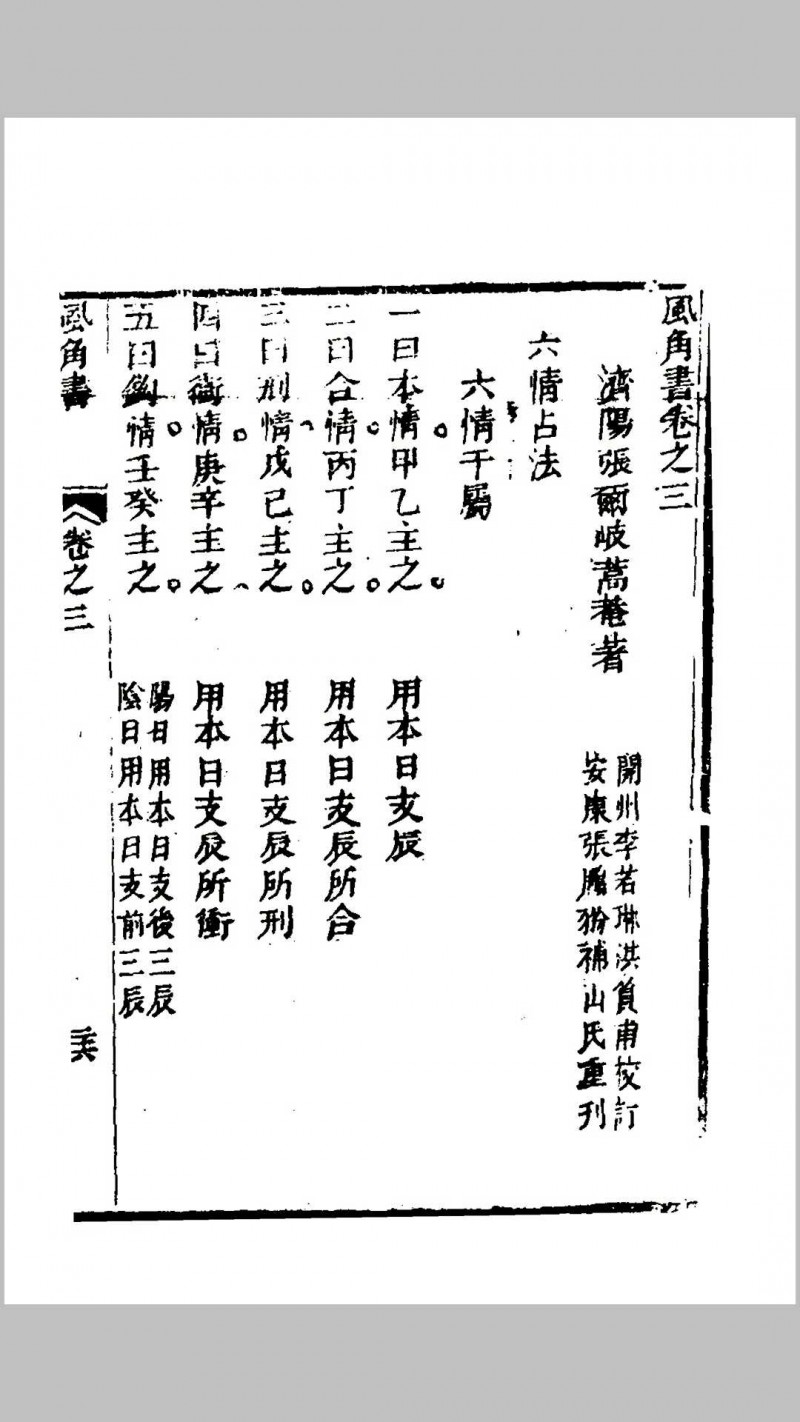 風角書卷之三
濟陽張爾岐蒿菴著
開州李若琳淇筫甫校訂
安康張鵬翂補山氏重刊
六情占法
六情干屬
一曰本情甲乙主之 用本日支辰
二曰合情丙丁主之 用本日支辰所合
三曰刑情戊己主之 用本日支辰所刑
四曰衝情庚辛主之 用本日支辰所衝
五曰鉤情壬癸主之 陽日用本日支後三辰
陰日用本日支前三辰
風角書 卷之三 三六